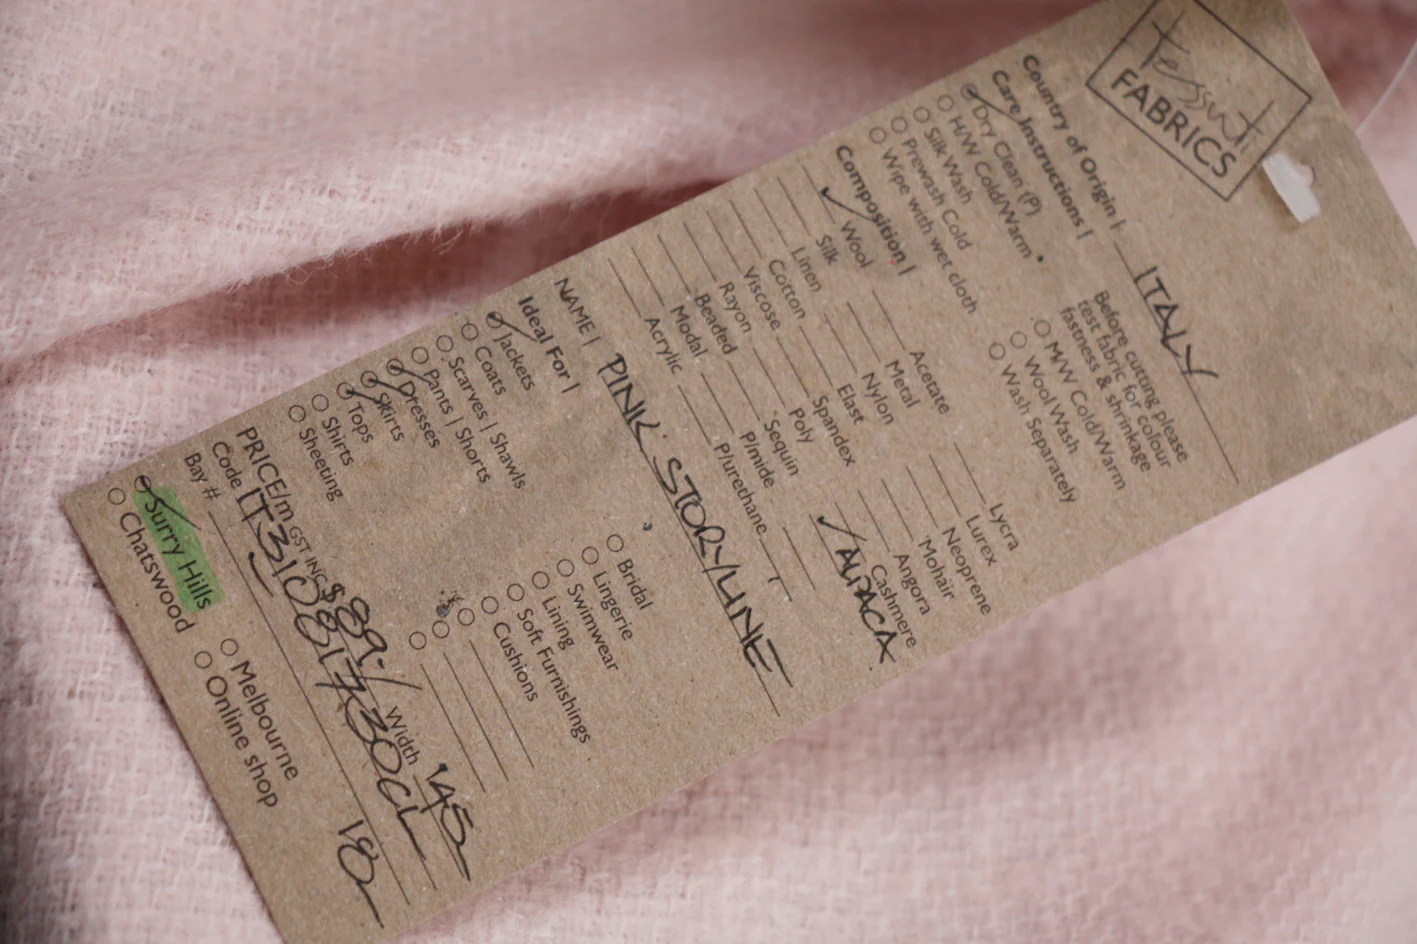 tessuti
FABRICS
Country of Origin | ITALY
Care Instructions |
Before cutting please
test fabric for colour
fastness & shrinkage
Dry Clean (P)
H/W Cold/Warm
Silk Wash
Prewash Cold
Wipe with wet cloth
M/W Cold/Warm
Wool Wash
Wash Separately
Composition |
Wool
Silk
Linen
Cotton
Viscose
Rayon
Beaded
Modal
Acrylic
Acetate
Metal
Nylon
Elast
Spandex
Poly
Sequin
P/mide
P/urethane
Lycra
Lurex
Neoprene
Mohair
Angora
Cashmere
/ALPACA
NAME | PINK STORY/LINE
Ideal For |
Jackets
Coats
Scarves | Shawls
Pants | Shorts
Dresses
Skirts
Tops
Shirts
Sheeting
Bridal
Lingerie
Swimwear
Lining
Soft Furnishings
Cushions
PRICE/m GST INC $89.- Width 145
Code
Bay # 18
Surry Hills
Chatswood
Melbourne
Online shop